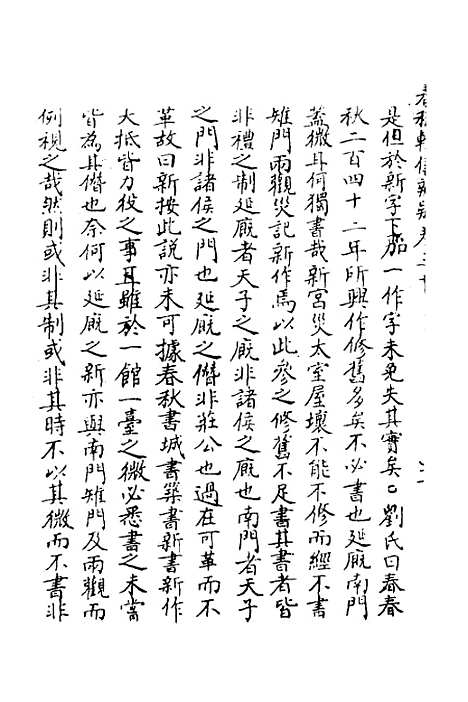 春秋輯傳辨疑卷二十
是但於新字下加一作字未免失其實矣○劉氏曰春
秋二百四十二年所興作修舊多矣不必書也延廐南門
蓋微耳何獨書哉新宮災太室屋壞不能不修而經不書
雉門兩觀災記新作焉以此參之修舊不足書其書者皆
非禮之制延廐者天子之廐非諸侯之廐也南門者天子
之門非諸侯之門也延廐之僭非莊公也過在可革而不
革故曰新按此說亦未可據春秋書城書築書新書新作
大抵皆力役之事耳雖於一館一臺之微必悉書之未嘗
皆為其僭也奈何以延廐之新亦與南門雉門及兩觀而
例視之哉然則或非其制或非其時不以其微而不書非